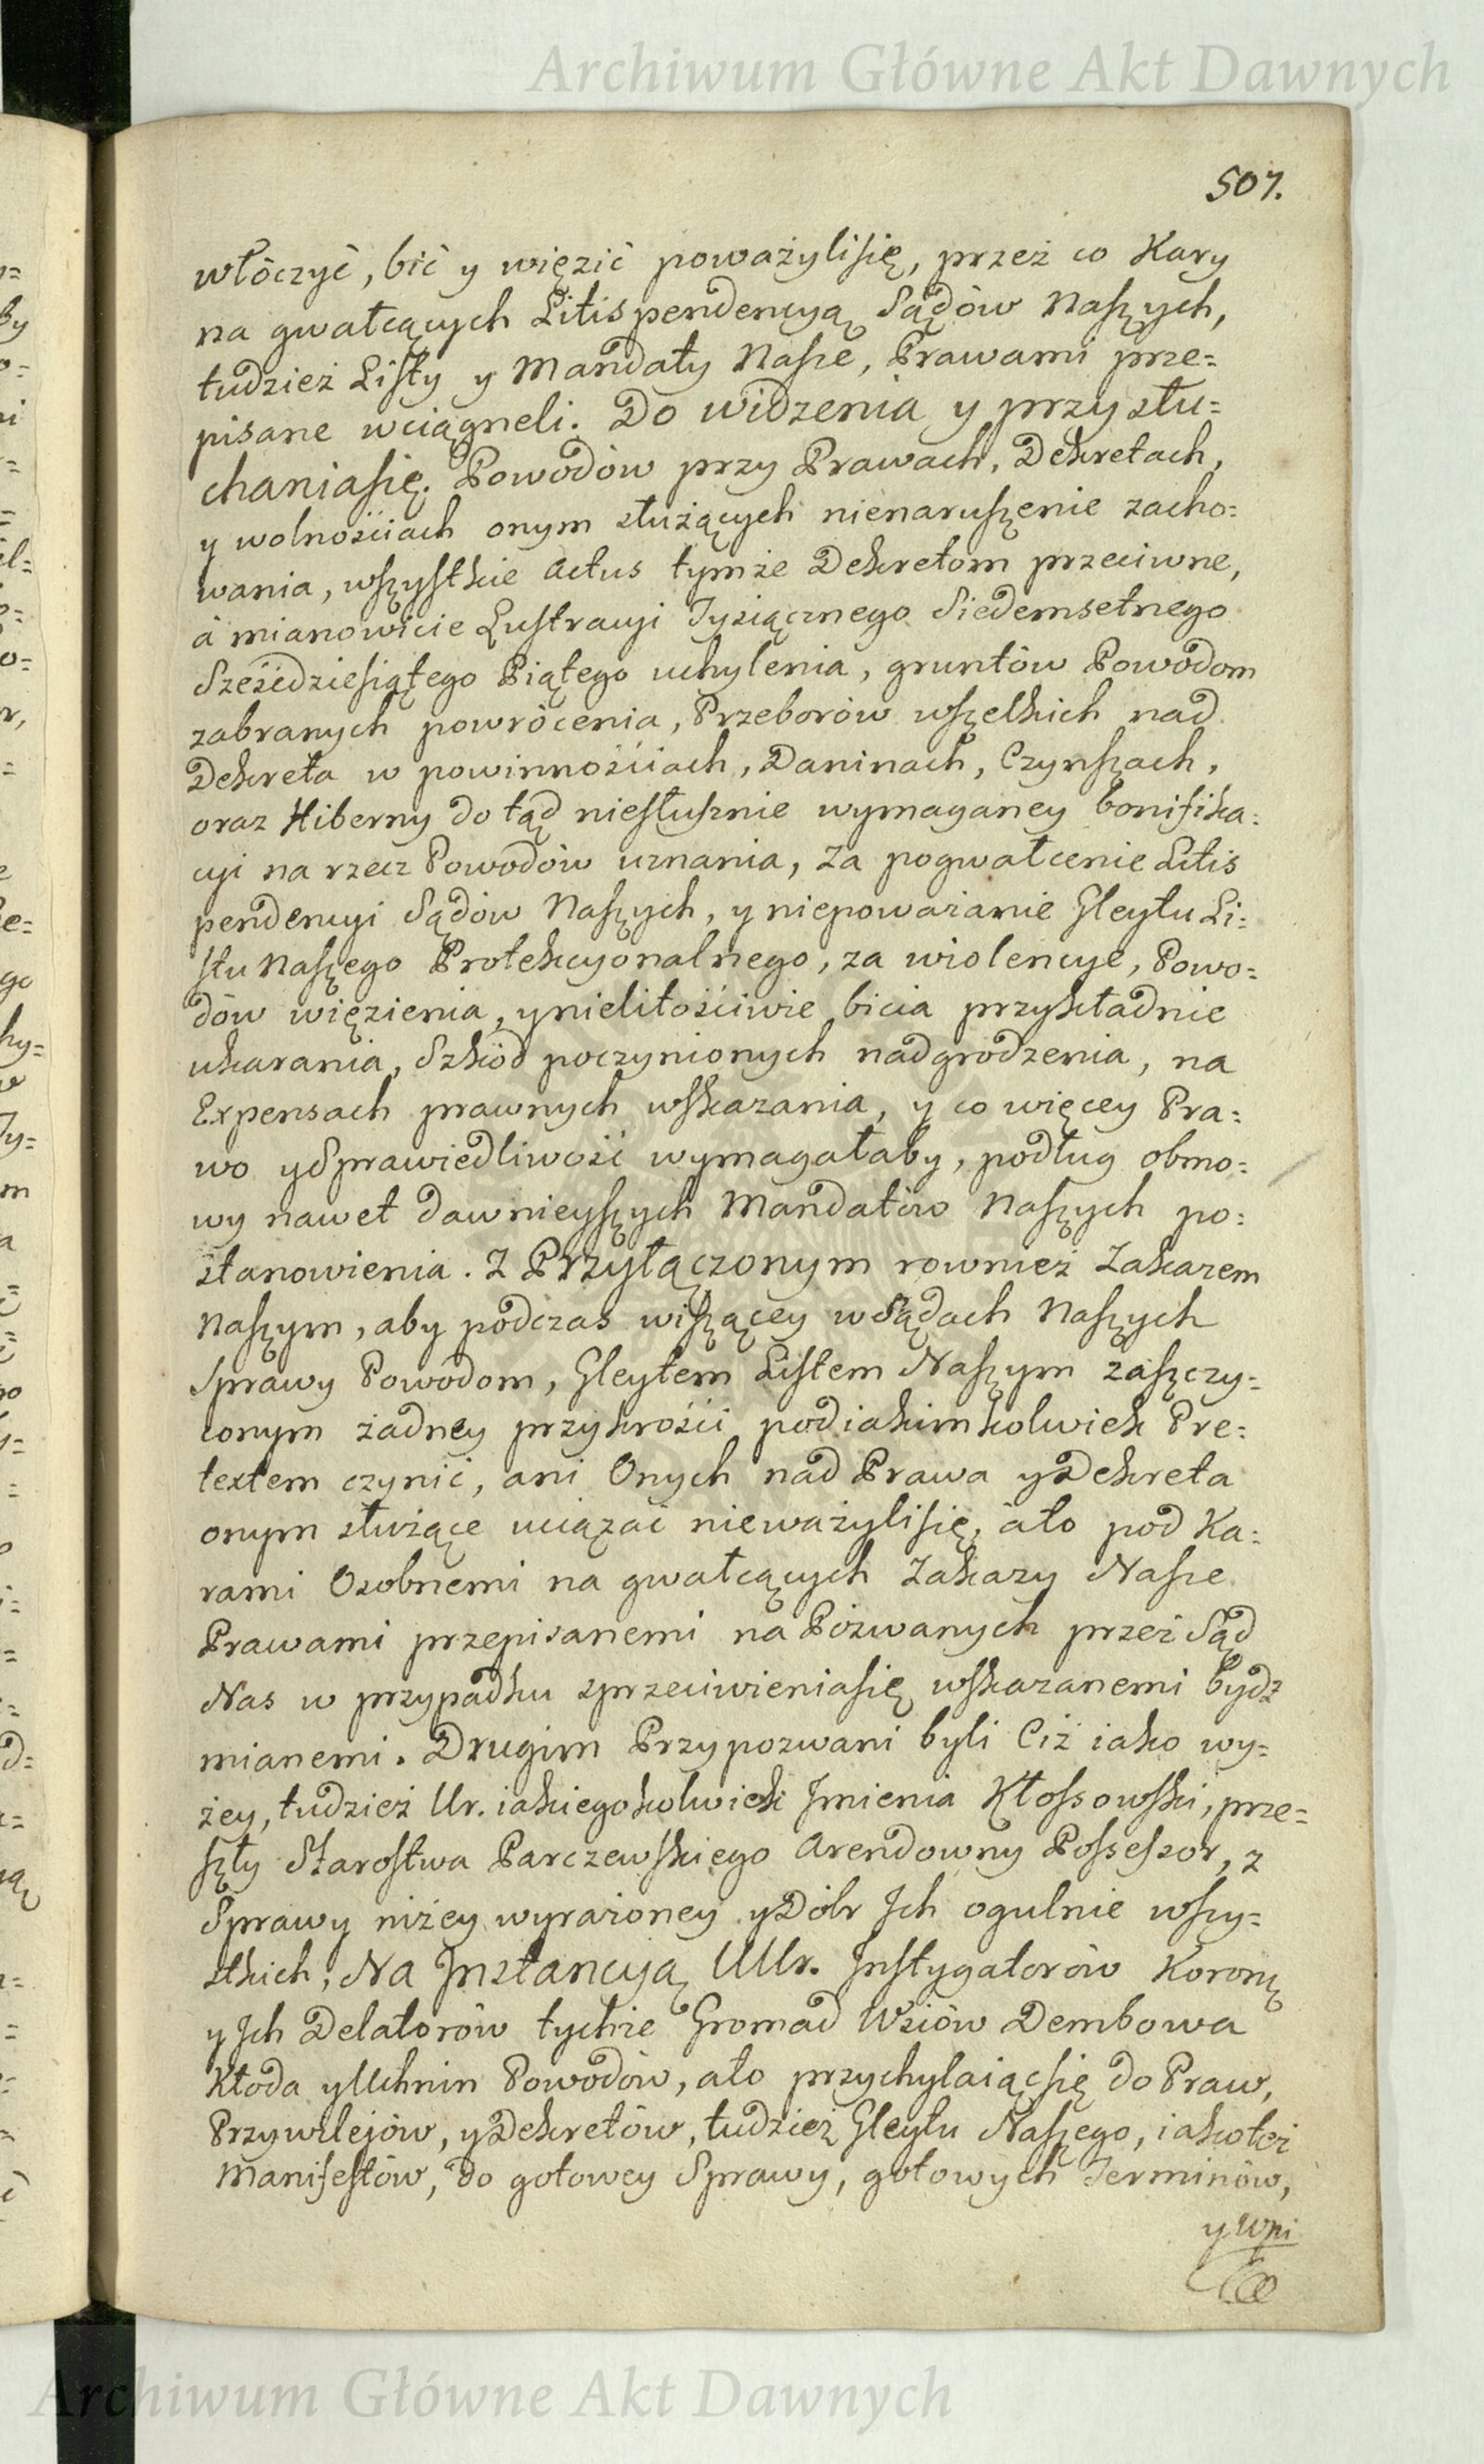 Archiwum Główne Akt Dawnych
507.
włóczyć, bić y więzić poważylisię, przez co Kary
na gwałcących Litispendencyą Sądów Naszych,
tudzież Listy y Mandaty Nasze, Prawami prze=
pisane wciągneli. Do widzenia y przysłu=
chaniasię. Powodów przy Prawach, Dekretach,
y wolnościach onym służących nienaruszenie zacho=
wania, wszystkie Actus tymże Dekretom przeciwne,
à mianowicie Lustracyi Tysiącznego Siedemsetnego
Sześćdziesiątego Piątego uchylenia, gruntów Powodom
zabranych powrócenia, Przeborów wszelkich nad
Dekreta w powinnościach, Daninach, Czynszach,
oraz Hiberny do tąd niesłusznie wymaganey bonifika=
cyi na rzecz Powodów uznania, za pogwałcenie Litis
pendencyi Sądów Naszych, y niepoważanie Gleytu Li=
stu Naszego Protekcyonalnego, za wiolencye, Powo=
dów więzienia, y nielitościwie bicia przykładnie
ukarania, Szkód poczynionych nadgrodzenia, na
Expensach prawnych wskazania, y co więcey Pra=
wo y Sprawiedliwość wymagałaby, podług obmo=
wy nawet dawnieyszych Mandatów Naszych po=
stanowienia. Z Przyłączonym rownież Zakazem
Naszym, aby podczas wiszącey w Sądach Naszych
Sprawy Powodom, Gleytem Listem Naszym zaszczy=
conym żadney przykrości pod iakimkolwiek Pre=
textem czynić, ani Onych nad Prawa y Dekreta
onym służące uciązać nieważylisię, ato pod Ka=
rami Osobnemi na gwałcących Zakazy Nasze
Prawami przepisanemi na Pozwanych przez Sąd
Nas w przypadku sprzeciwieniasię wskazanemi bydz
mianemi. Drugim Przypozwani byli Ciż iako wy=
żey, tudzież Ur. iakiegokolwiek Jmienia Kłossowski, prze=
szły Starostwa Parczewskiego Arendowny Possessor, z
Sprawy niżey wyrażoney y Dóbr Jch ogulnie wszy=
stkich, Na Jnstancyą UUr. Jnstygatorów Koronn
y Jch Delatorów tychże Gromad Wsiów Dembowa
Kłoda y Uhnin Powodów, ato przychylaiącsię do Praw,
Przywilejów, y Dekretów, tudzież Gleytu Naszego, iakoteż
Manifestów, do gotowey Sprawy, gotowych Terminów,
y Wpi
Archiwum Główne Akt Dawnych